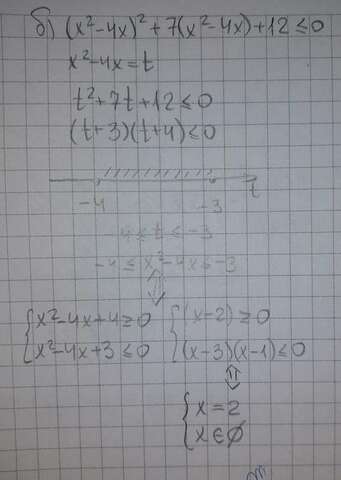 б) (x²-4x)²+7(x²-4x)+12≤0
x²-4x=t
t²+7t+12≤0
(t+3)(t+4)≤0
-4 -3 t
-4≤t≤-3
-4≤x²-4x≤-3
⇕
{x²-4x+4≥0 {(x-2)≥0
{x²-4x+3≤0 {(x-3)(x-1)≤0
⇕
{x=2
{x∈∅